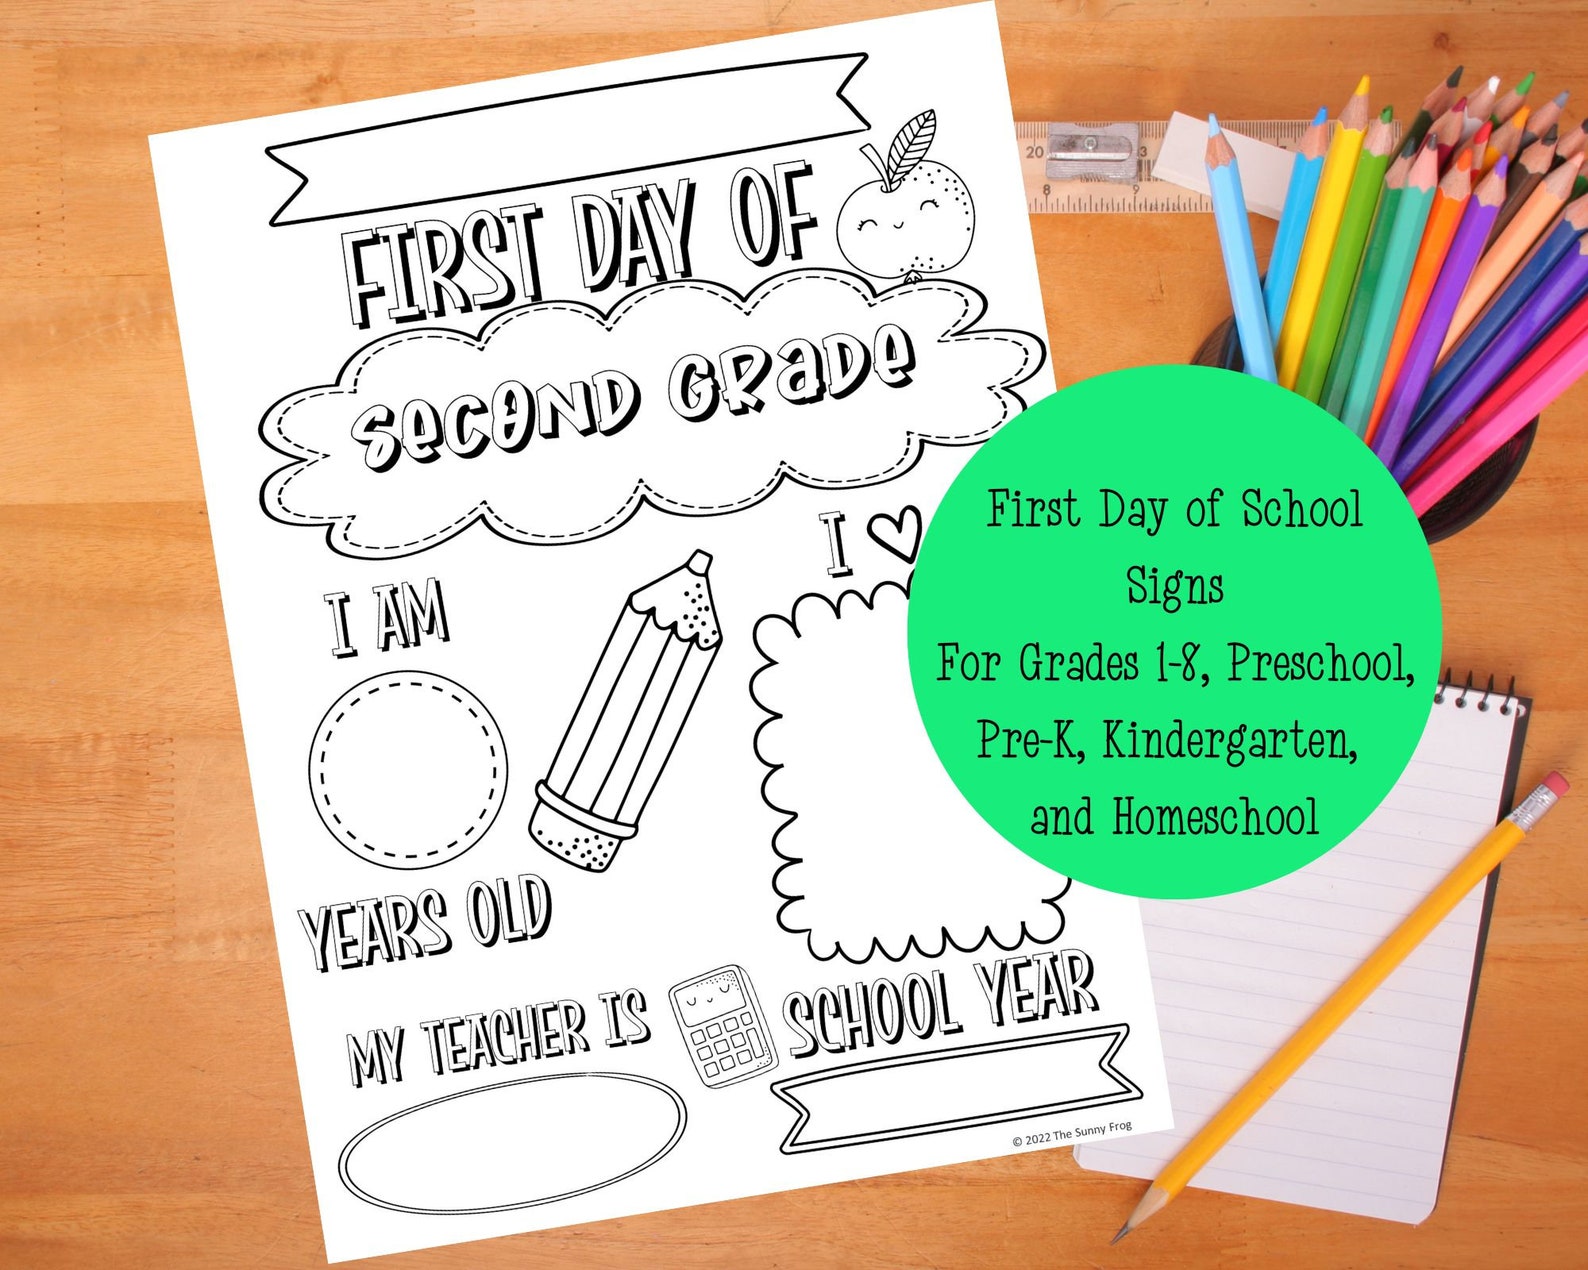 FIRST DAY OF
SECOND GRADE
I AM
I
YEARS OLD
MY TEACHER IS
SCHOOL YEAR
© 2022 The Sunny Frog
First Day of School
Signs
For Grades 1-8, Preschool,
Pre-K, Kindergarten,
and Homeschool
20
3
8
9